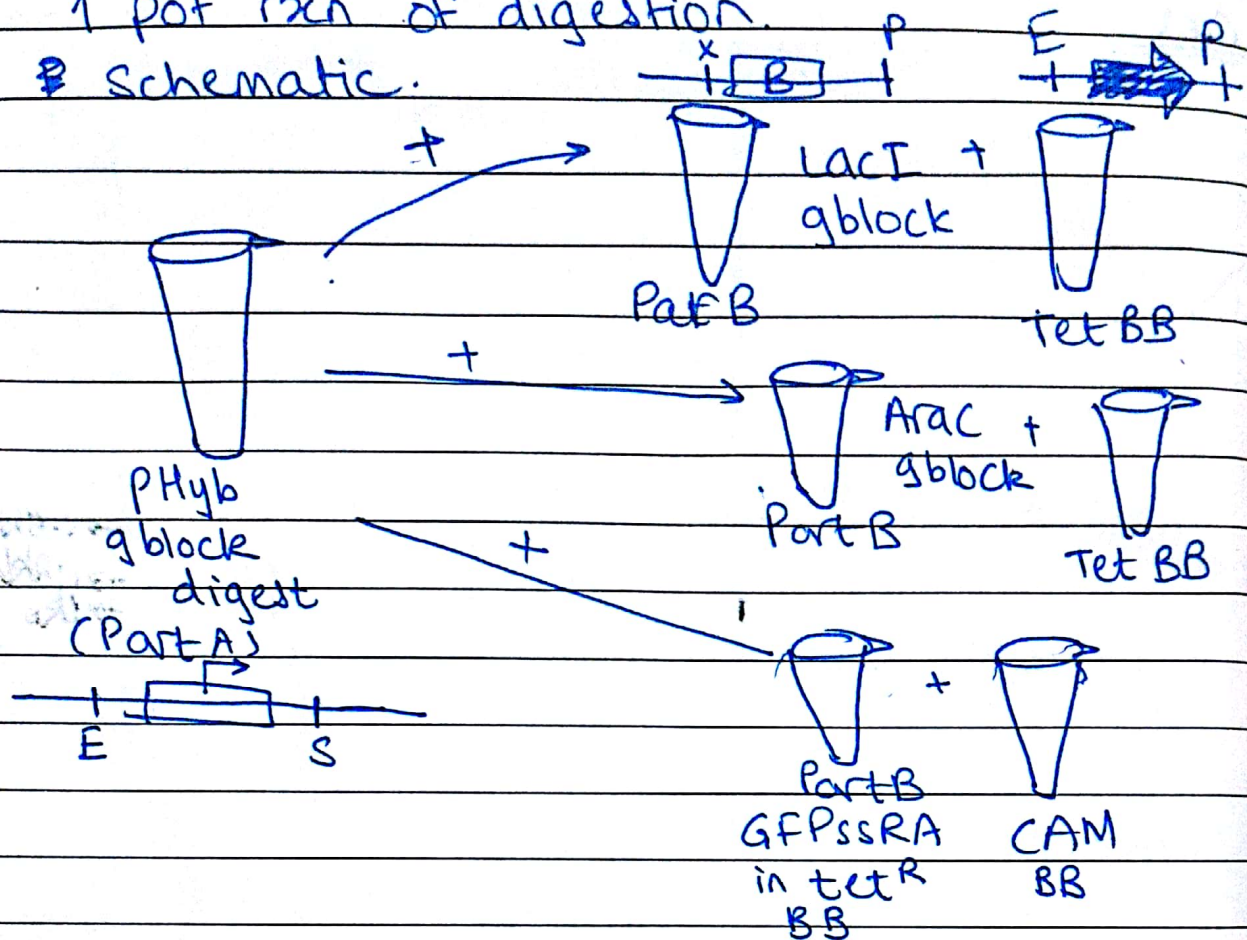 1 pot rxn of digestion.
schematic.
X B P
E P
+
LacI +
gblock
Part B
Tet BB
+
AraC +
gblock
Part B
Tet BB
pHyb
gblock
digest
(Part A)
E S
+
+
Part B
GFPssRA
in tetR
BB
CAM
BB